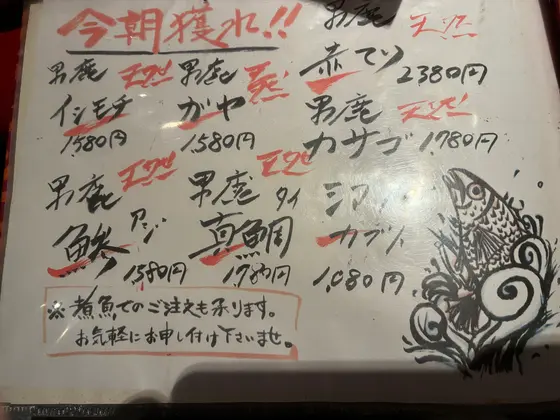 今朝獲れ!!
男鹿 天然!
イシモチ
1,580円
男鹿
ガヤ
1,580円
男鹿 天然!
赤てり
2380円
男鹿 天然!
カサゴ 1,780円
男鹿 天然!
鯵 アジ
1,580円
男鹿 天然!
真鯛 タイ
1,780円
カブリ
1,080円
※煮魚でのご注文も承ります。
お気軽にお申し付け下さいませ。